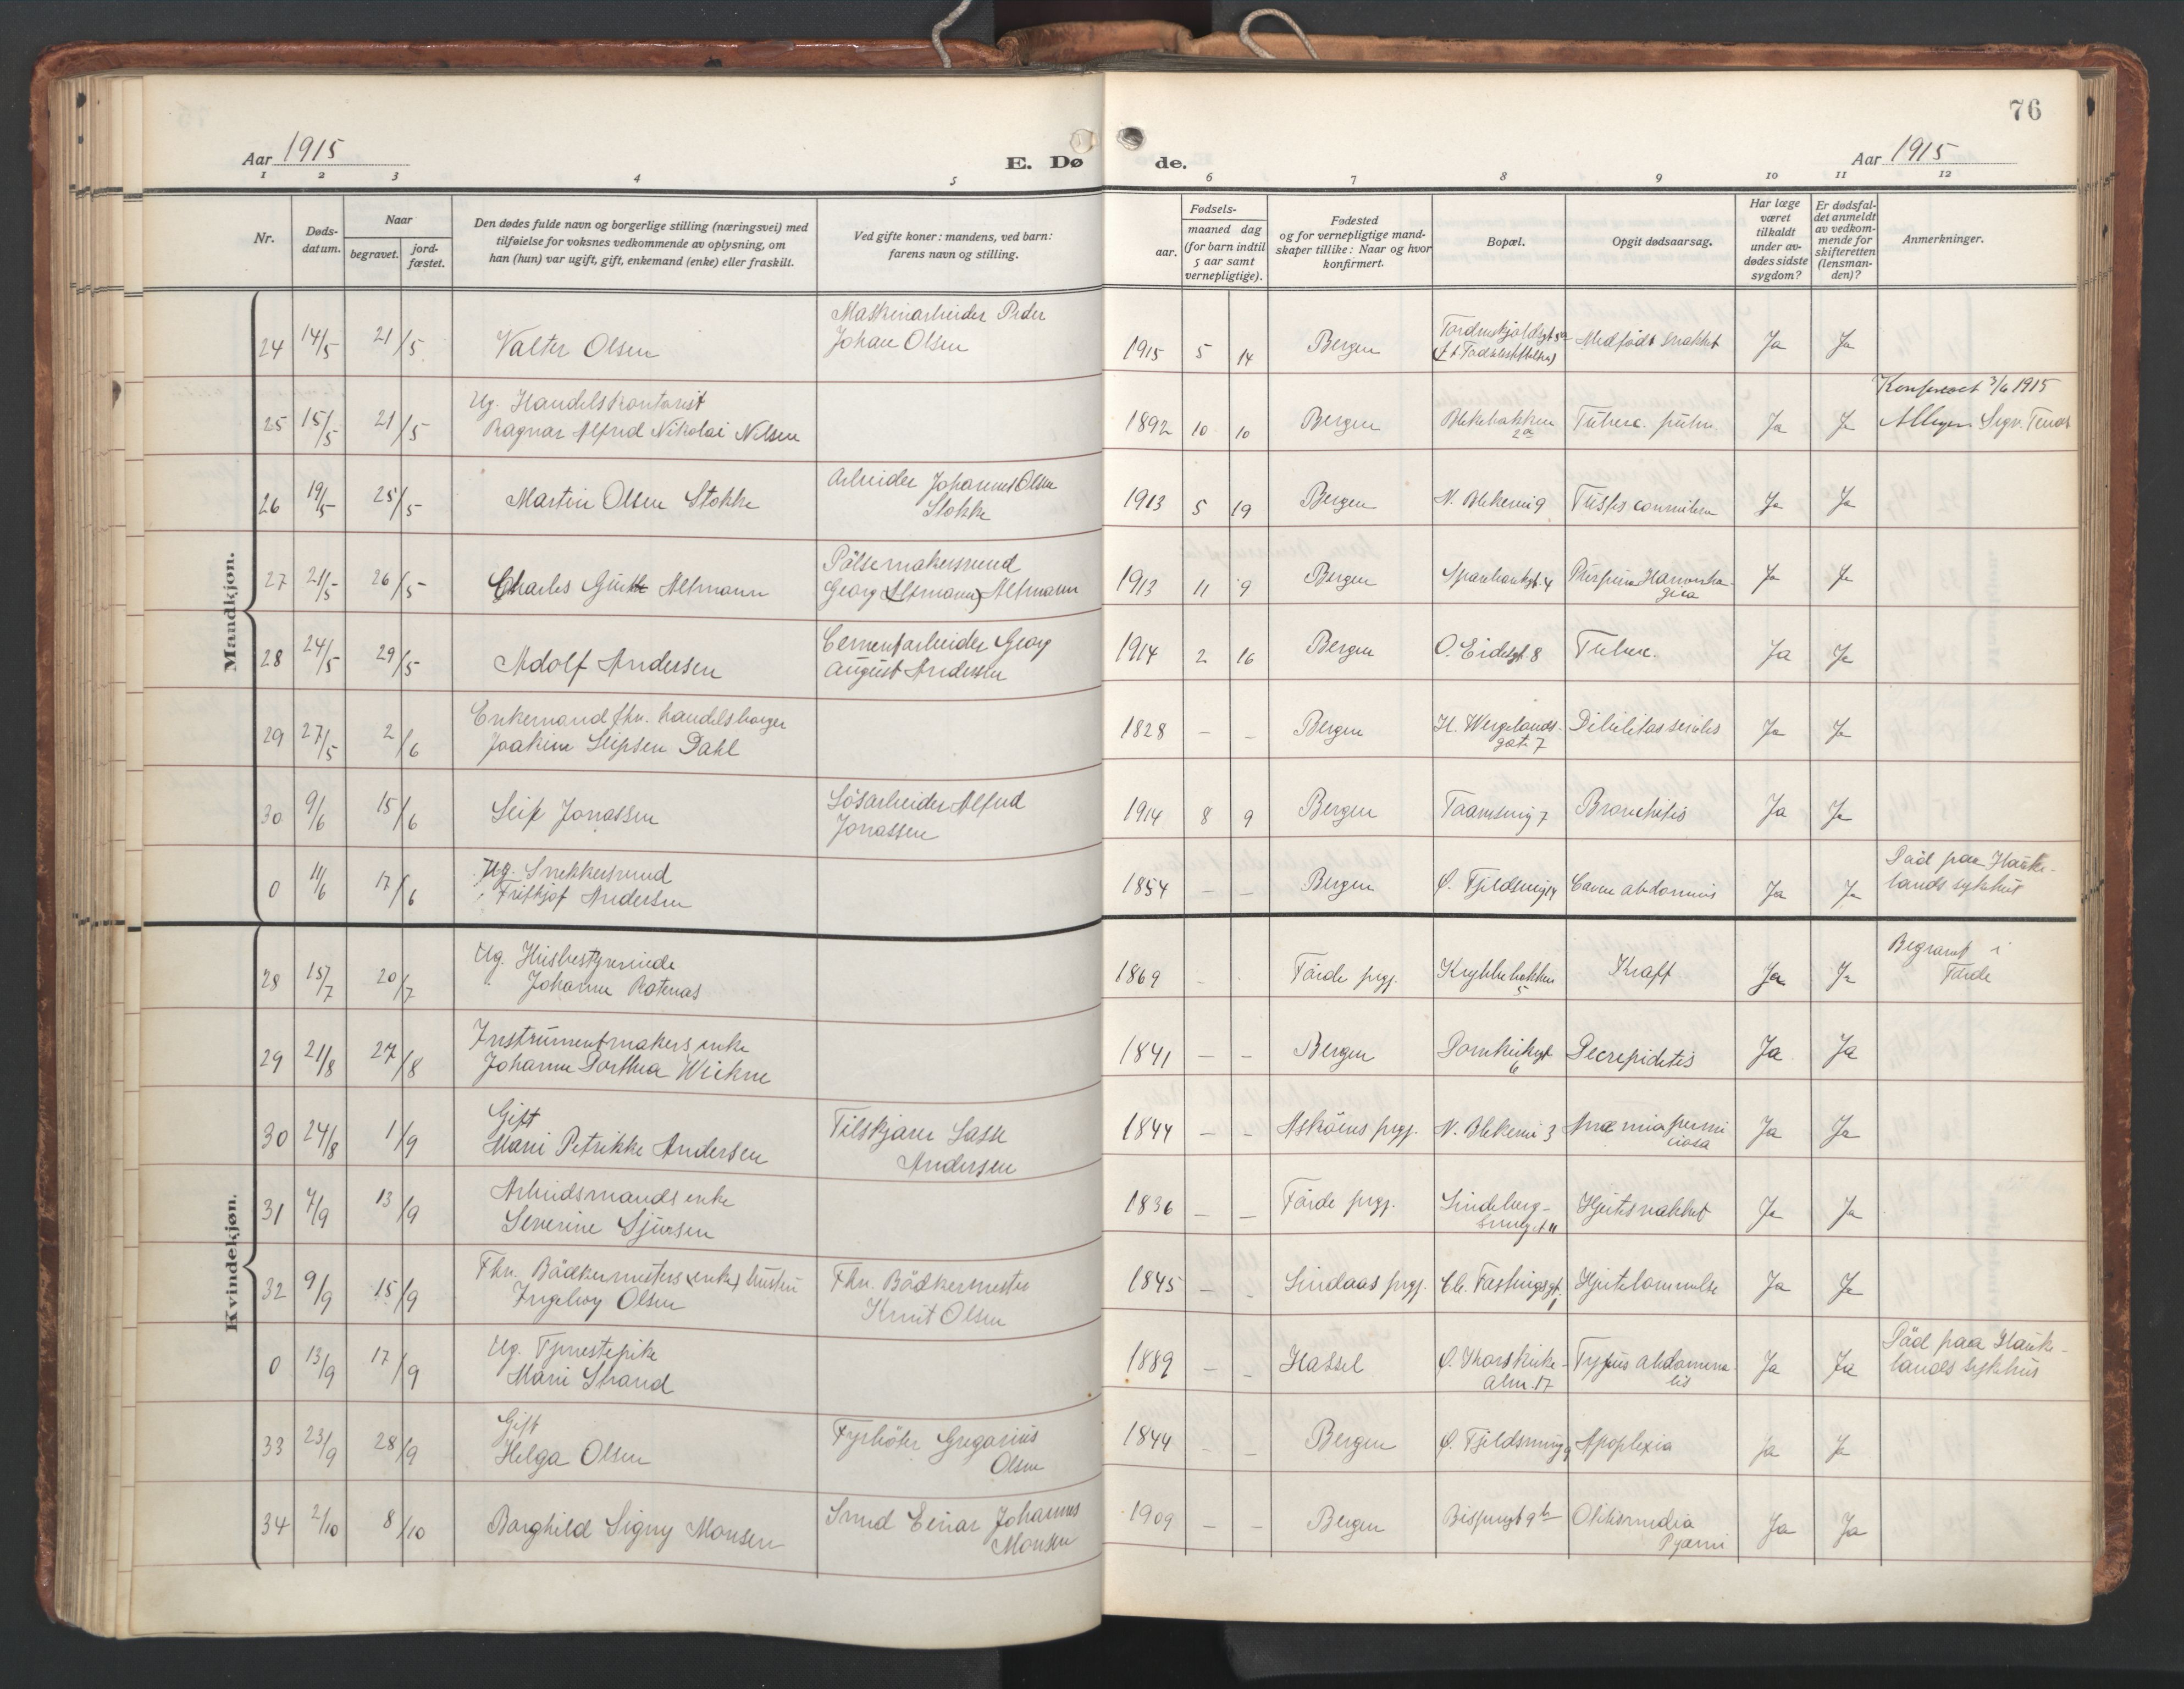 76
Aar 1915
E. Dø
de.
Aar 1915
1 2 3 4 5 6 7 8 9 10 11 12
Nr.
Døds-
datum.
Naar
begravet.
jord-
fæstet.
Den dødes fulde navn og borgerlige stilling (næringsvei) med
tilføielse for voksnes vedkommende av oplysning, om
han (hun) var ugift, gift, enkemand (enke) eller fraskilt.
Ved gifte koner: mandens, ved barn:
farens navn og stilling.
Fødsels-
aar.
maaned dag
(for barn indtil
5 aar samt
vernepligtige).
Fødested
og for vernepligtige mand-
skaper tillike: Naar og hvor
konfirmert.
Bopæl.
Opgit dødsaarsag.
Har læge
været
tilkaldt
under av-
dødes sidste
sygdom?
Er dødsfal-
det anmeldt
av vedkom-
mende for
skifteretten
(lensman-
den)?
Anmerkninger.
Mandkjøn.
Maskinarbeider Peder
24 14/5 21/5 Valter Olsen Johan Olsen 1915 5 14 Bergen Medfødt svakhet Ja Ja
Ug. Handelskontorist
25 15/5 21/5 Ragnar Alfred Nikolai Nilsen 1892 10 10 Bergen Blekebakken 2a Tuberc. pulm. Ja Ja
Konfereret 3/6 1915
Arbeider Johannes Olsen
26 19/5 25/5 Martin Olsen Stokke Stokke 1913 5 19 Bergen N. Blekevei 9 Tussis convulsiva Ja Ja
Pølsemakersvend
27 21/5 26/5 Charles Altmann Georg (Altmann) Altmann 1913 11 9 Bergen Sparebankgt. 4 Ja Ja
Cementarbeider Georg
28 24/5 29/5 Adolf Andersen August Andersen 1914 2 16 Bergen O. Eidesgt. 8 Tuberc. Ja Ja
Enkemand fhv. handelsborger
29 27/5 2/6 Joakim Leipsen Dahl 1828 – – Bergen H. Wergelands-
gate 7 Debilitas senilis Ja Ja
Løsarbeider Alfred
30 9/6 15/6 Leif Jonassen Jonassen 1914 8 9 Bergen Bronchitis Ja Ja
Ug. Snekkersvend
0 11/6 17/6 Fritkjof Andersen 1854 – – Bergen Ø. Fjeldsmug 14 Cancer abdominis Ja Ja
Død paa Hauke-
lands sykehus
Kvindekjøn.
Ug. Husbestyrerinde
28 15/7 20/7 Johanne Rotenas 1869 Førde prgj. Krybbebakken
5 Kræft Ja Ja
Begravet i
Førde
Instrumentmakers enke
29 21/8 27/8 Johanne Dorthea Wickne 1841 – – Bergen Domkirkegt
6 Decrepiditas Ja Ja
Gift
30 24/8 1/9 Marie Petrikke Andersen Filskjærer Lasse
Andersen 1844 – – Askøens prgj. N. Blekevei 3 Anæmia perni
ciosa Ja Ja
Arbeidsmands enke
31 7/9 13/9 Severine Sjursen 1836 – – Førde prgj. Lindeberg-
smuget 11 Hjertesvakhet Ja Ja
Fhv. Bødkermesters (enke) hustru
32 9/9 15/9 Ingeborg Olsen Fhv. Bødkermester
Knut Olsen 1845 – – Lindaas prgj. Cl. Fastingsgt.
1 Hjertelammelse Ja Ja
Ug. Tjenestepike
0 13/9 17/9 Marie Strand 1889 – Hassel Ø. Korskirke-
alm. 17 Tyfus abdomina-
lis Ja Ja
Død paa Hauke-
lands sykehus
Gift
33 23/9 28/9 Helga Olsen Fyrbøter Gregorius
Olsen 1844 – – Bergen Ø. Fjeldsmug 9 Apoplexia ja Ja
34 2/10 8/10 Borghild Signy Monsen Smed Einar Johannes
Monsen 1909 – – Bergen Bispengt 9b Otitis media
Pyæmi Ja Ja